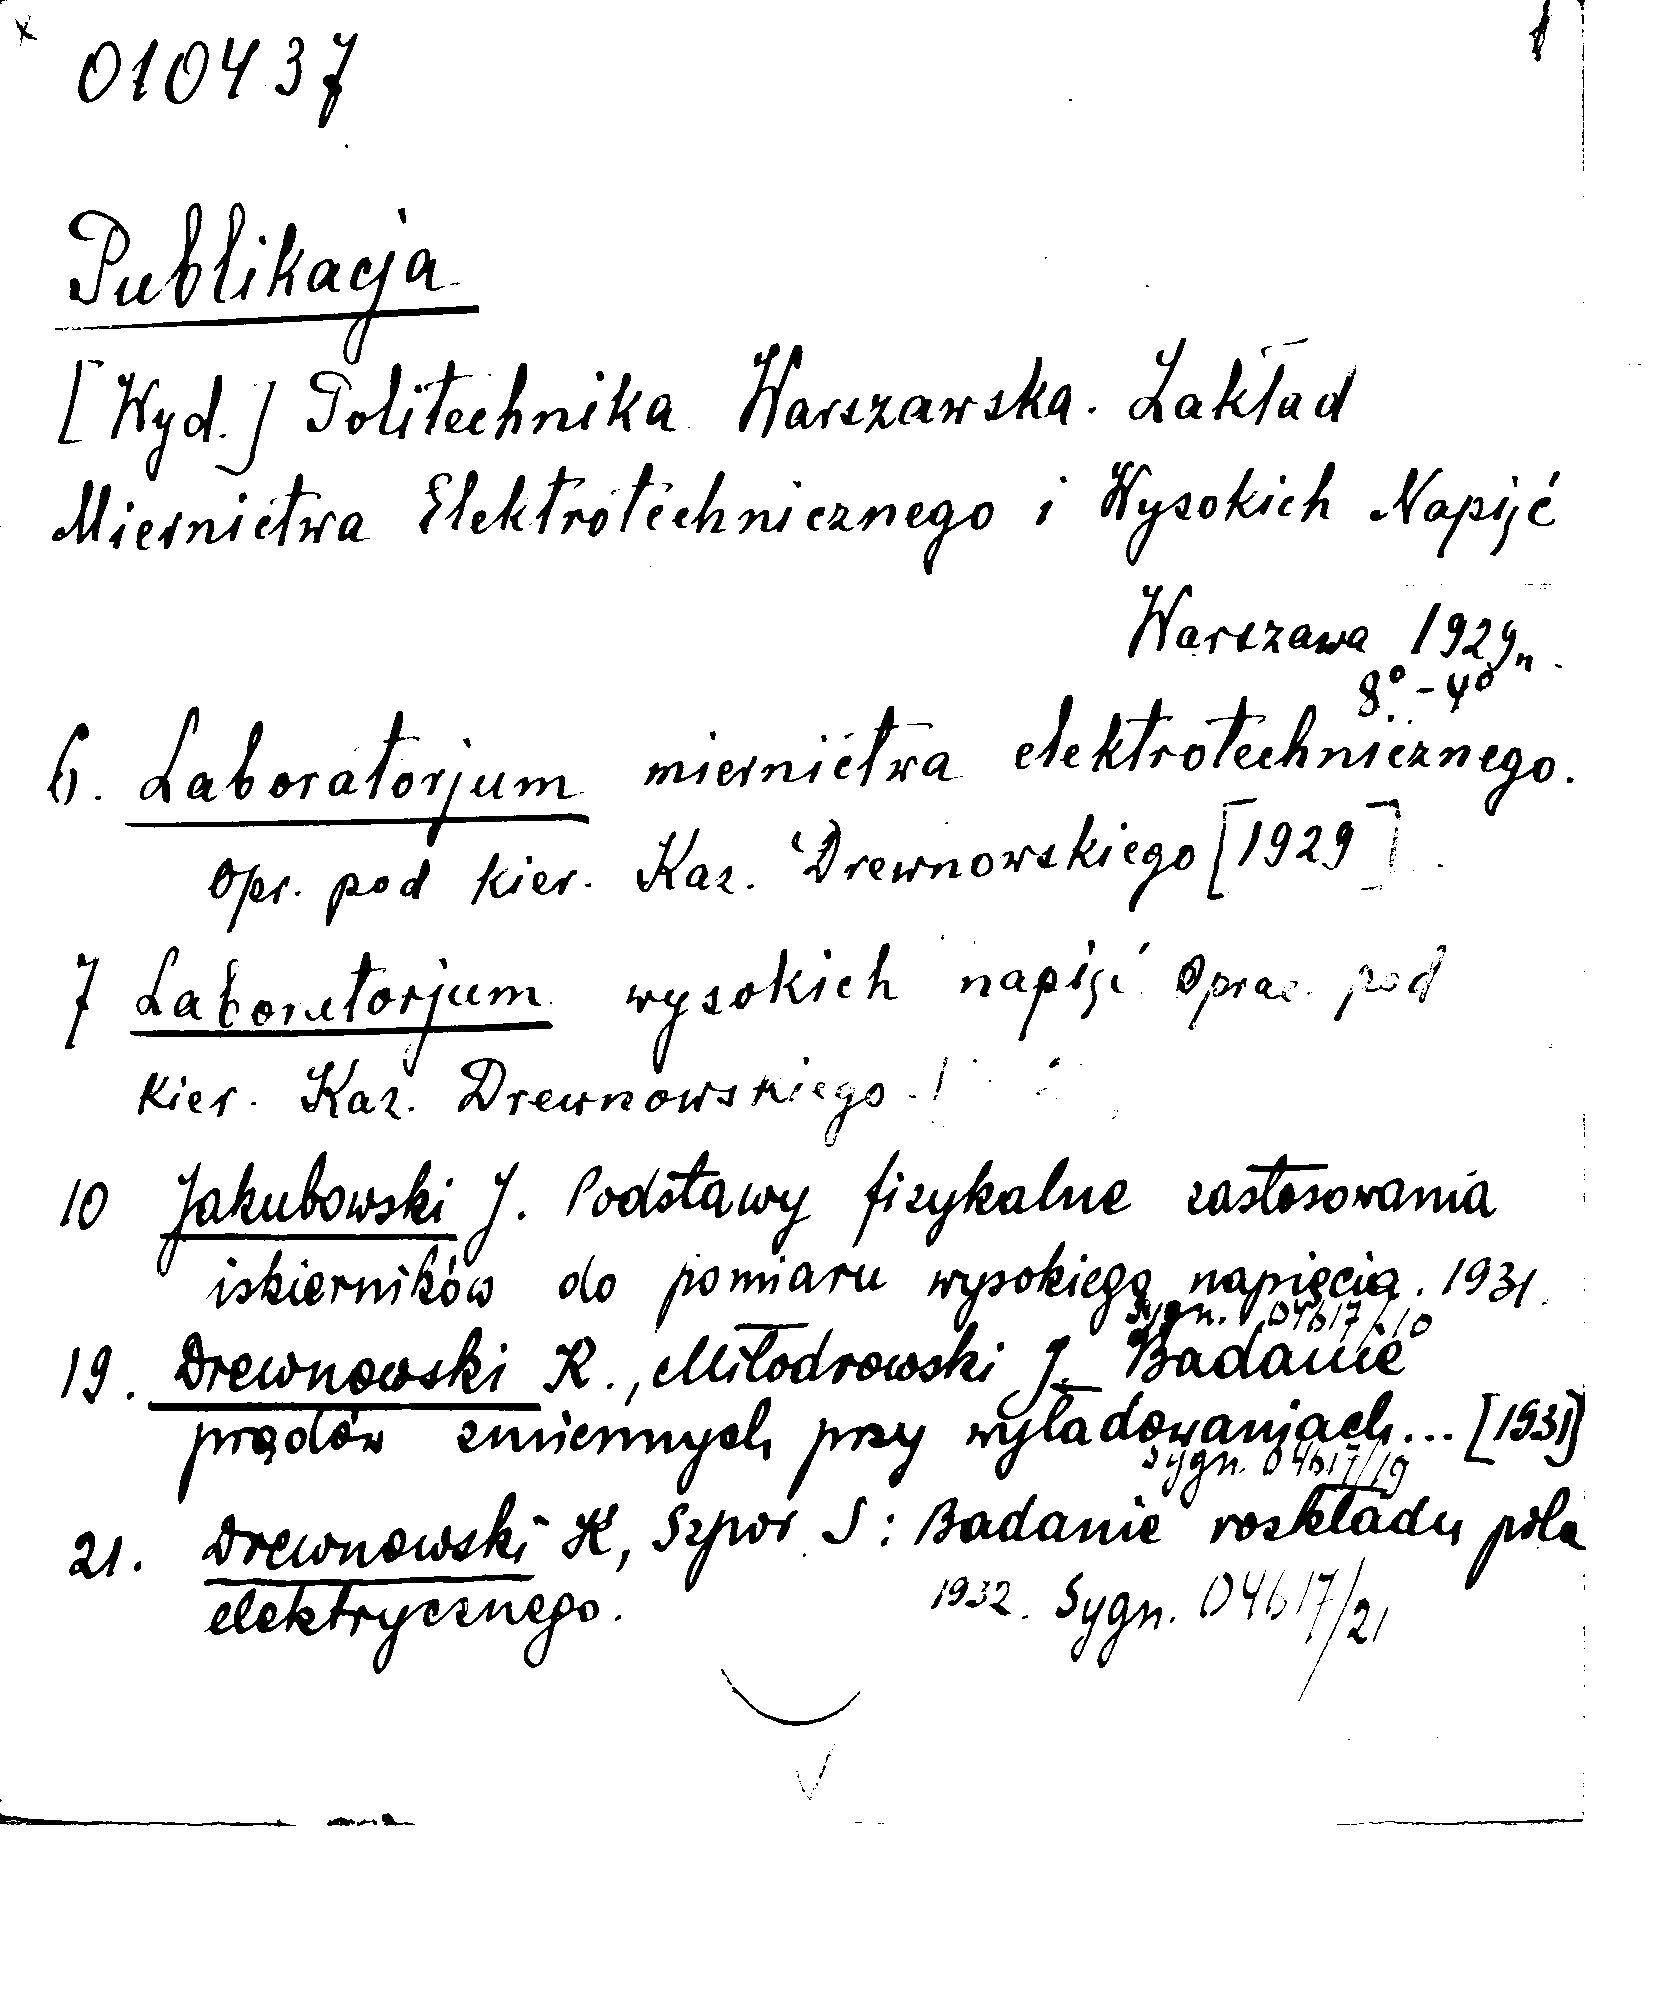 010437
Publikacja
[Wyd.] Politechnika Warszawska. Zakład
Miernictwa Elektrotechnicznego i Wysokich Napięć
Warszawa 1929n.
8° - 4°
6. Laboratorjum miernictwa elektrotechnicznego.
Opr. pod kier. Kaz. Drewnowskiego [1929]
7 Laboratorjum wysokich napięć Oprac. pod
kier. Kaz. Drewnowskiego.
10 Jakubowski J. Podstawy fizykalne zastosowania
iskierników do pomiaru wysokiego napięcia. 1931.
Sygn. 04617/10
19. Drewnowski K., Miłodrowski J. Badanie
prądów zmiennych przy wyładowaniach... [1931]
Sygn. 04617/19
21. Drewnowski K, Szpor S: Badanie rozkładu pola
elektrycznego. 1932. Sygn. 04617/21